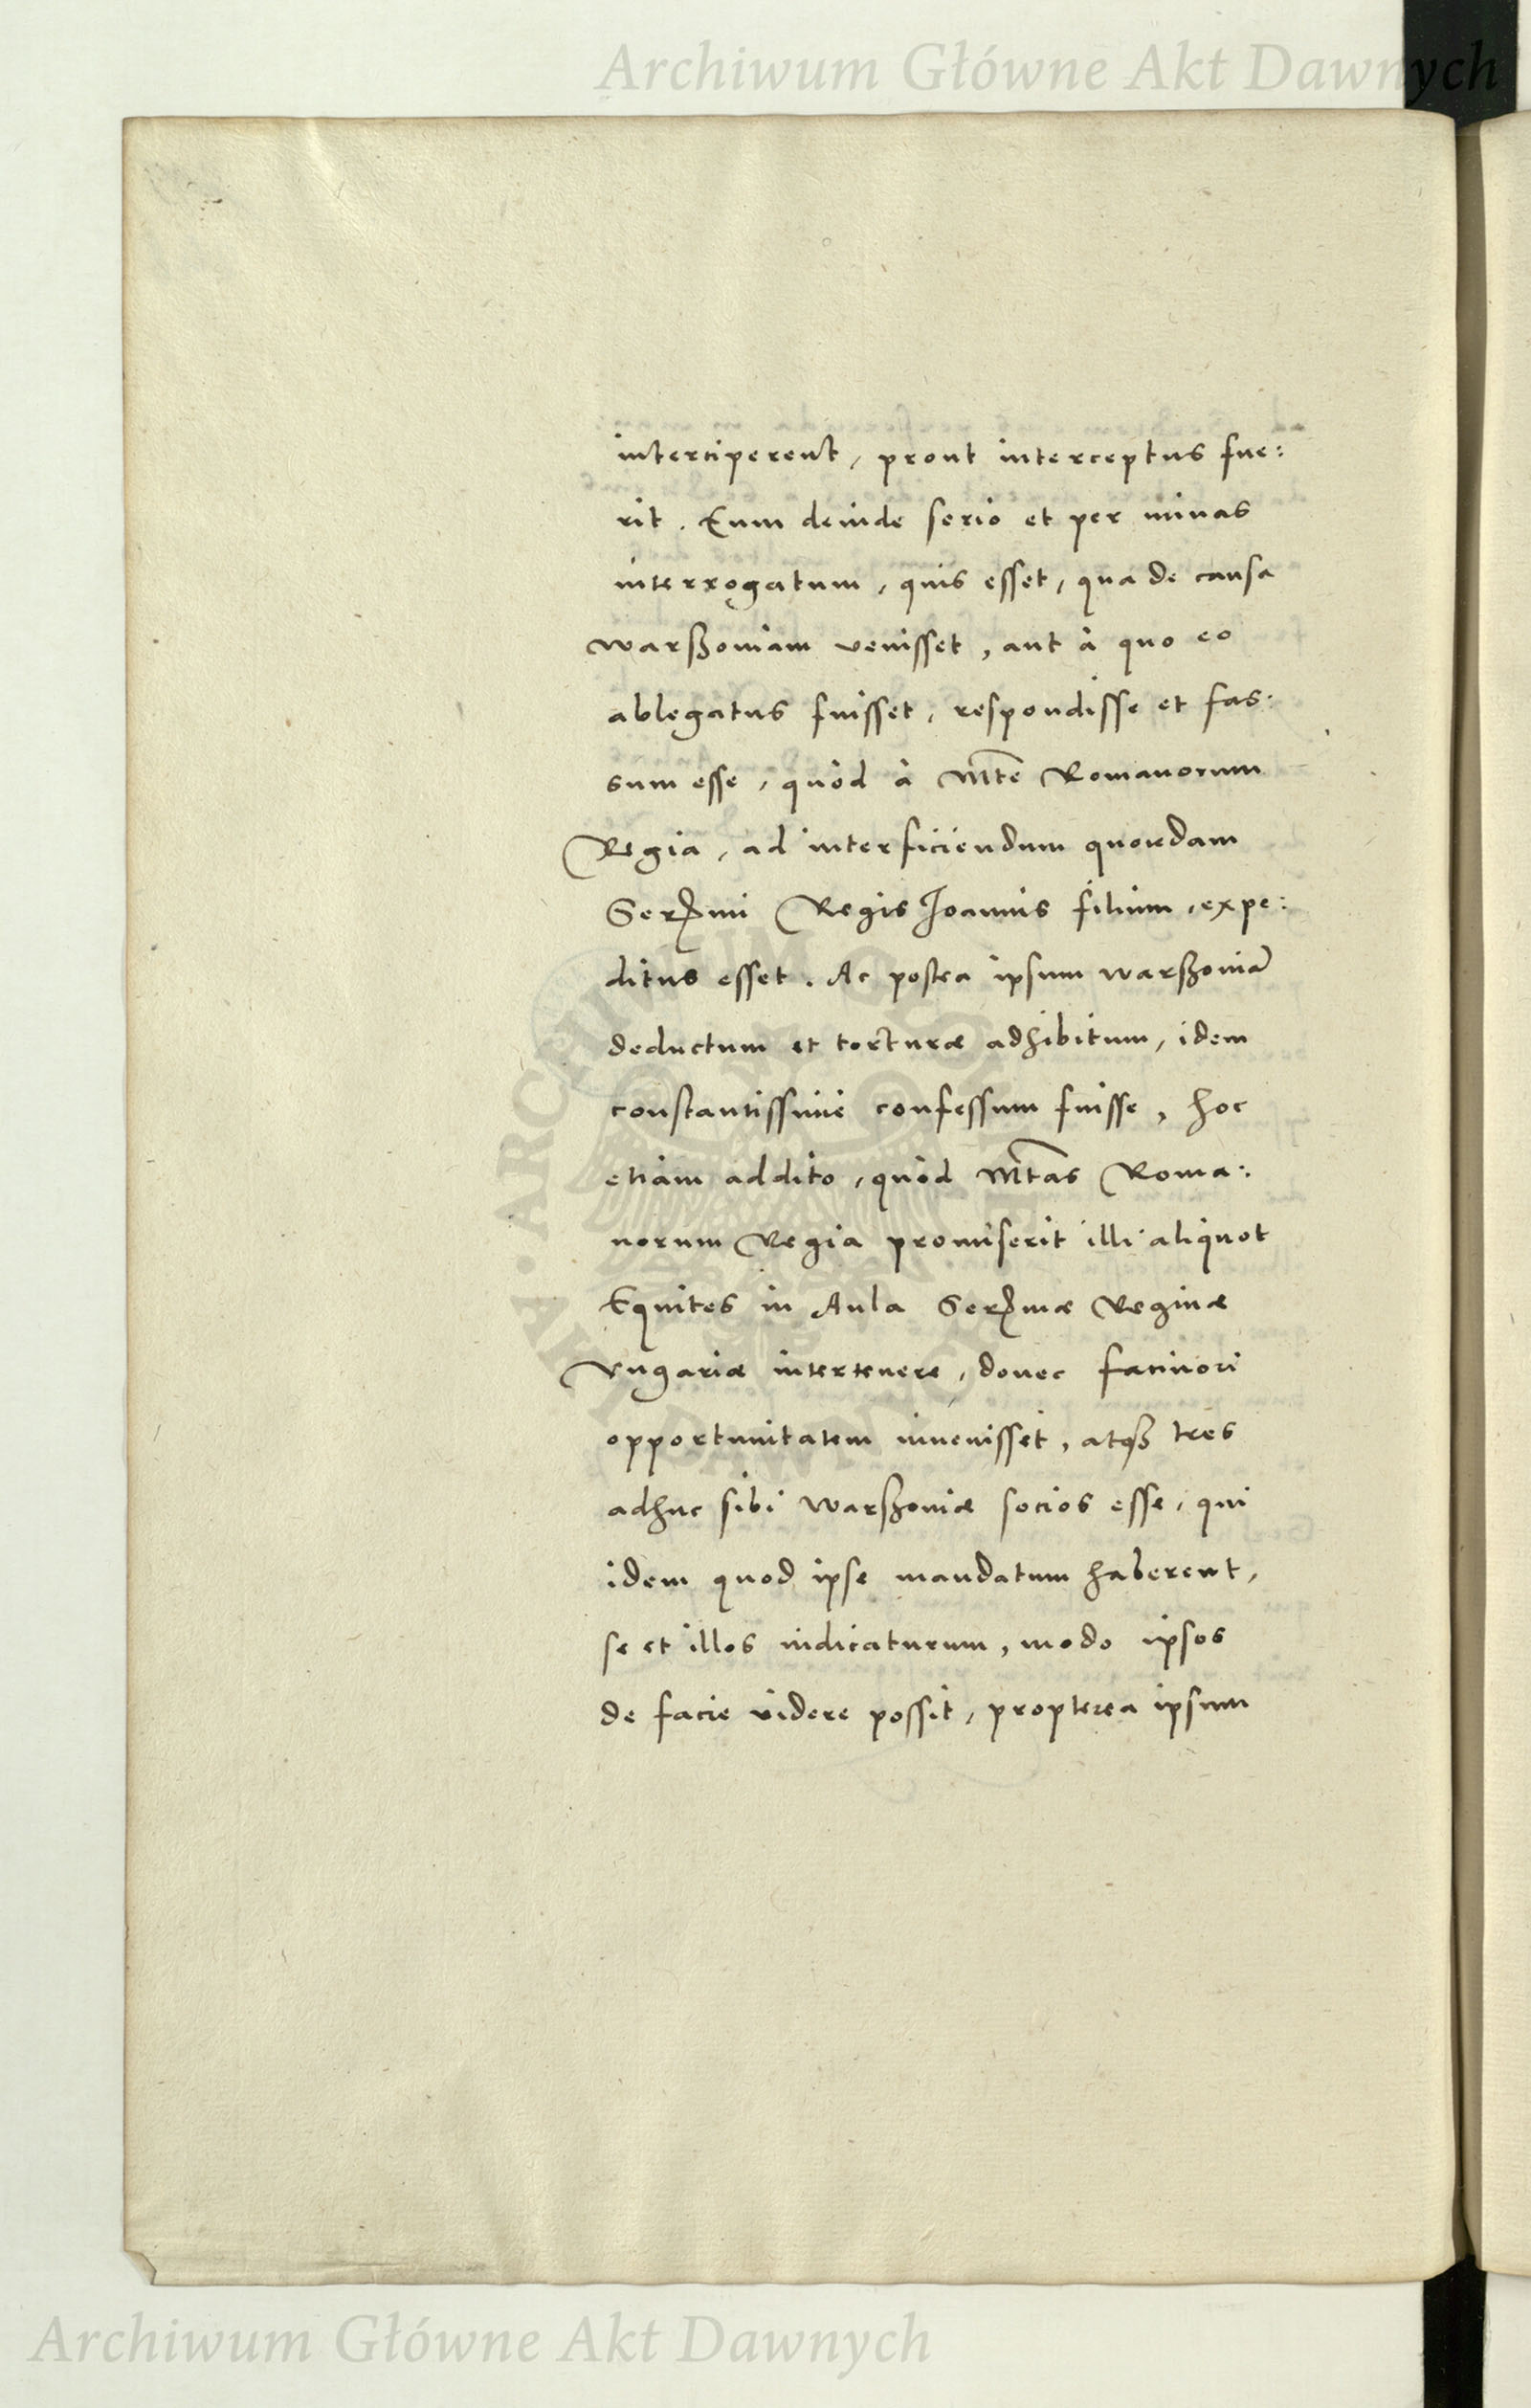 Archiwum Główne Akt Dawnych
interciperent, prout interceptus fue:
rit. Eum deinde serio et per minas
interrogatum, quis esset, qua de causa
warßouiam venisset, aut à quo eo
ablegatus fuisset, respondisse et fas:
sum esse, quòd à Mte Romanorum
Regia, ad interficiendum quondam
Sermi Regis Ioannis filium, expe:
ditus esset. Ac postea ipsum warßouiã
deductum et torturæ adhibitum, idem
constantissime confessum fuisse, hoc
etiam addito, quòd Mtas Roma:
norum Regia promiserit illi aliquot
Equites in Aula Sermæ Reginæ
Vngariæ intertenere, donec facinori
opportunitatem inuenisset, atqꝫ tres
adhuc sibi warßouiæ socios esse, qui
idem quod ipse mandatum haberent,
se et illos indicaturum, modo ipsos
de facie videre possit, propterea ipsum
ARCHIWUM GŁÓWNE AKT DAWNYCH
Archiwum Główne Akt Dawnych